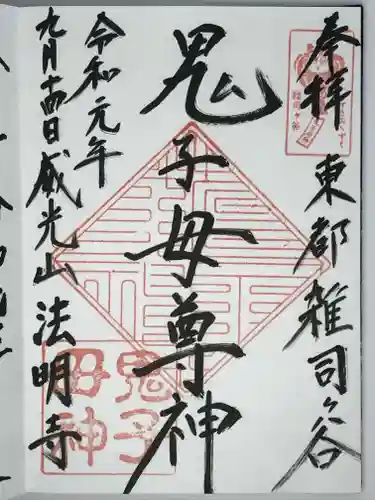 奉拝
東都雑司ヶ谷
鬼子母尊神
令和元年
九月十四日
威光山
法明寺
鬼子
母神